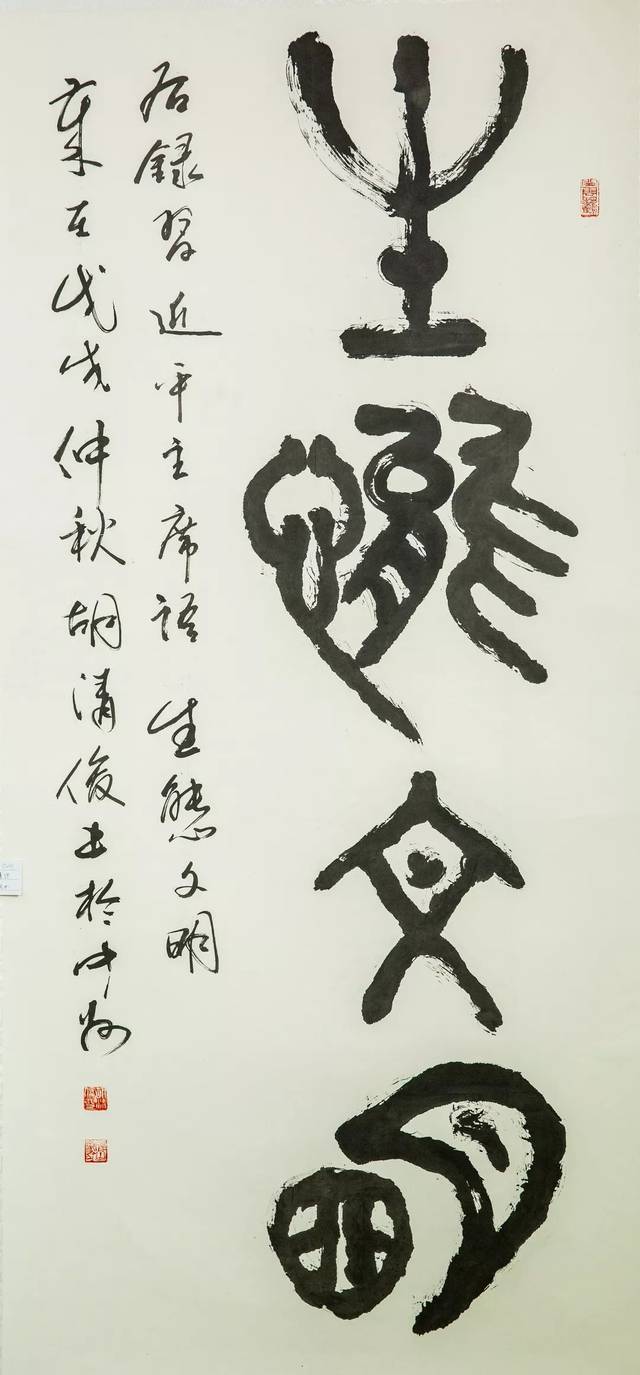 生態文明
右録習近平主席語 生態文明
歲在戊戌仲秋胡清俊書於中州